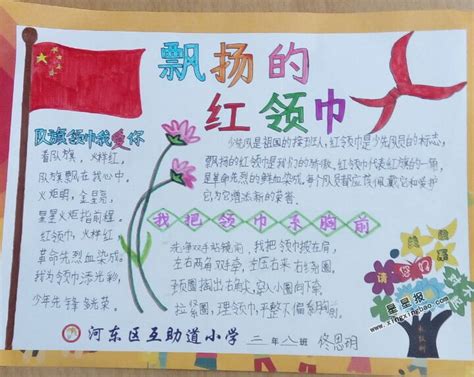 飘扬的
红领巾
队旗领巾我爱你
看队旗，火样红，
队旗飘在我心中，
火炬明，金星亮，
星星火炬指前程。
红领巾，火样红
革命先烈血染成。
我为领巾添光彩，
少年先锋多光荣。
少先队是祖国的接班人，红领巾是少先队员的标志，
飘扬的红领巾是我们的骄傲，红领巾代表红旗的一角，
是革命先烈的鲜血染成。每个队员都应该佩戴它和爱护
它为它增添新的荣誉。
我把领巾系胸前
先净双手站镜前，我把领巾披在肩，
左右两角双手牵，左压右来右绕圈，
预圈掏出右角尖，右尖小圈向下牵，
拉紧圈，理领巾，平整不偏系胸前。
请
河东区互助道小学 二年八班 佟思明
星星报
www.xingxingbao.com